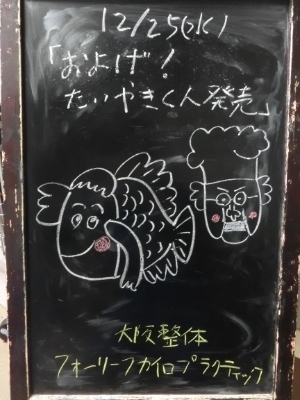 12/25(水)
「およげ!
たいやきくん発売」
大阪整体
フォーリーフカイロプラクティック